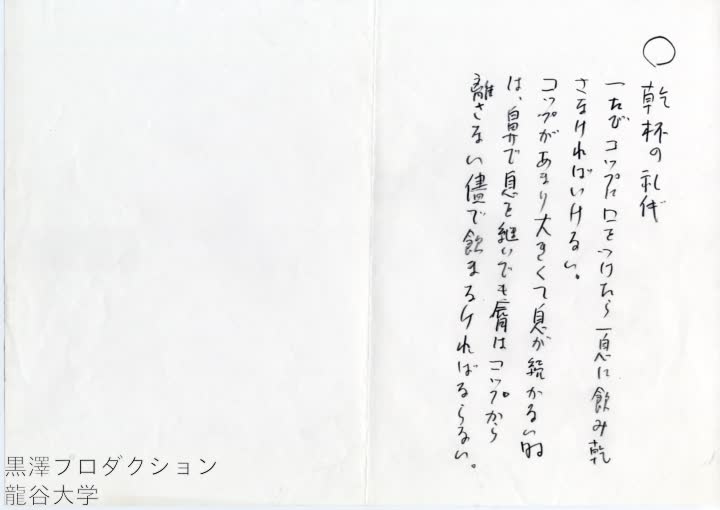 ○
乾杯の礼代
一たびコップに口をつけたら一息に飲み乾
さなければいけない。
コップがあまり大きくて息が続かない時
は、鼻で息を継いでも唇はコップから
離さない儘で飲まなければならない。
黒澤プロダクション
龍谷大学